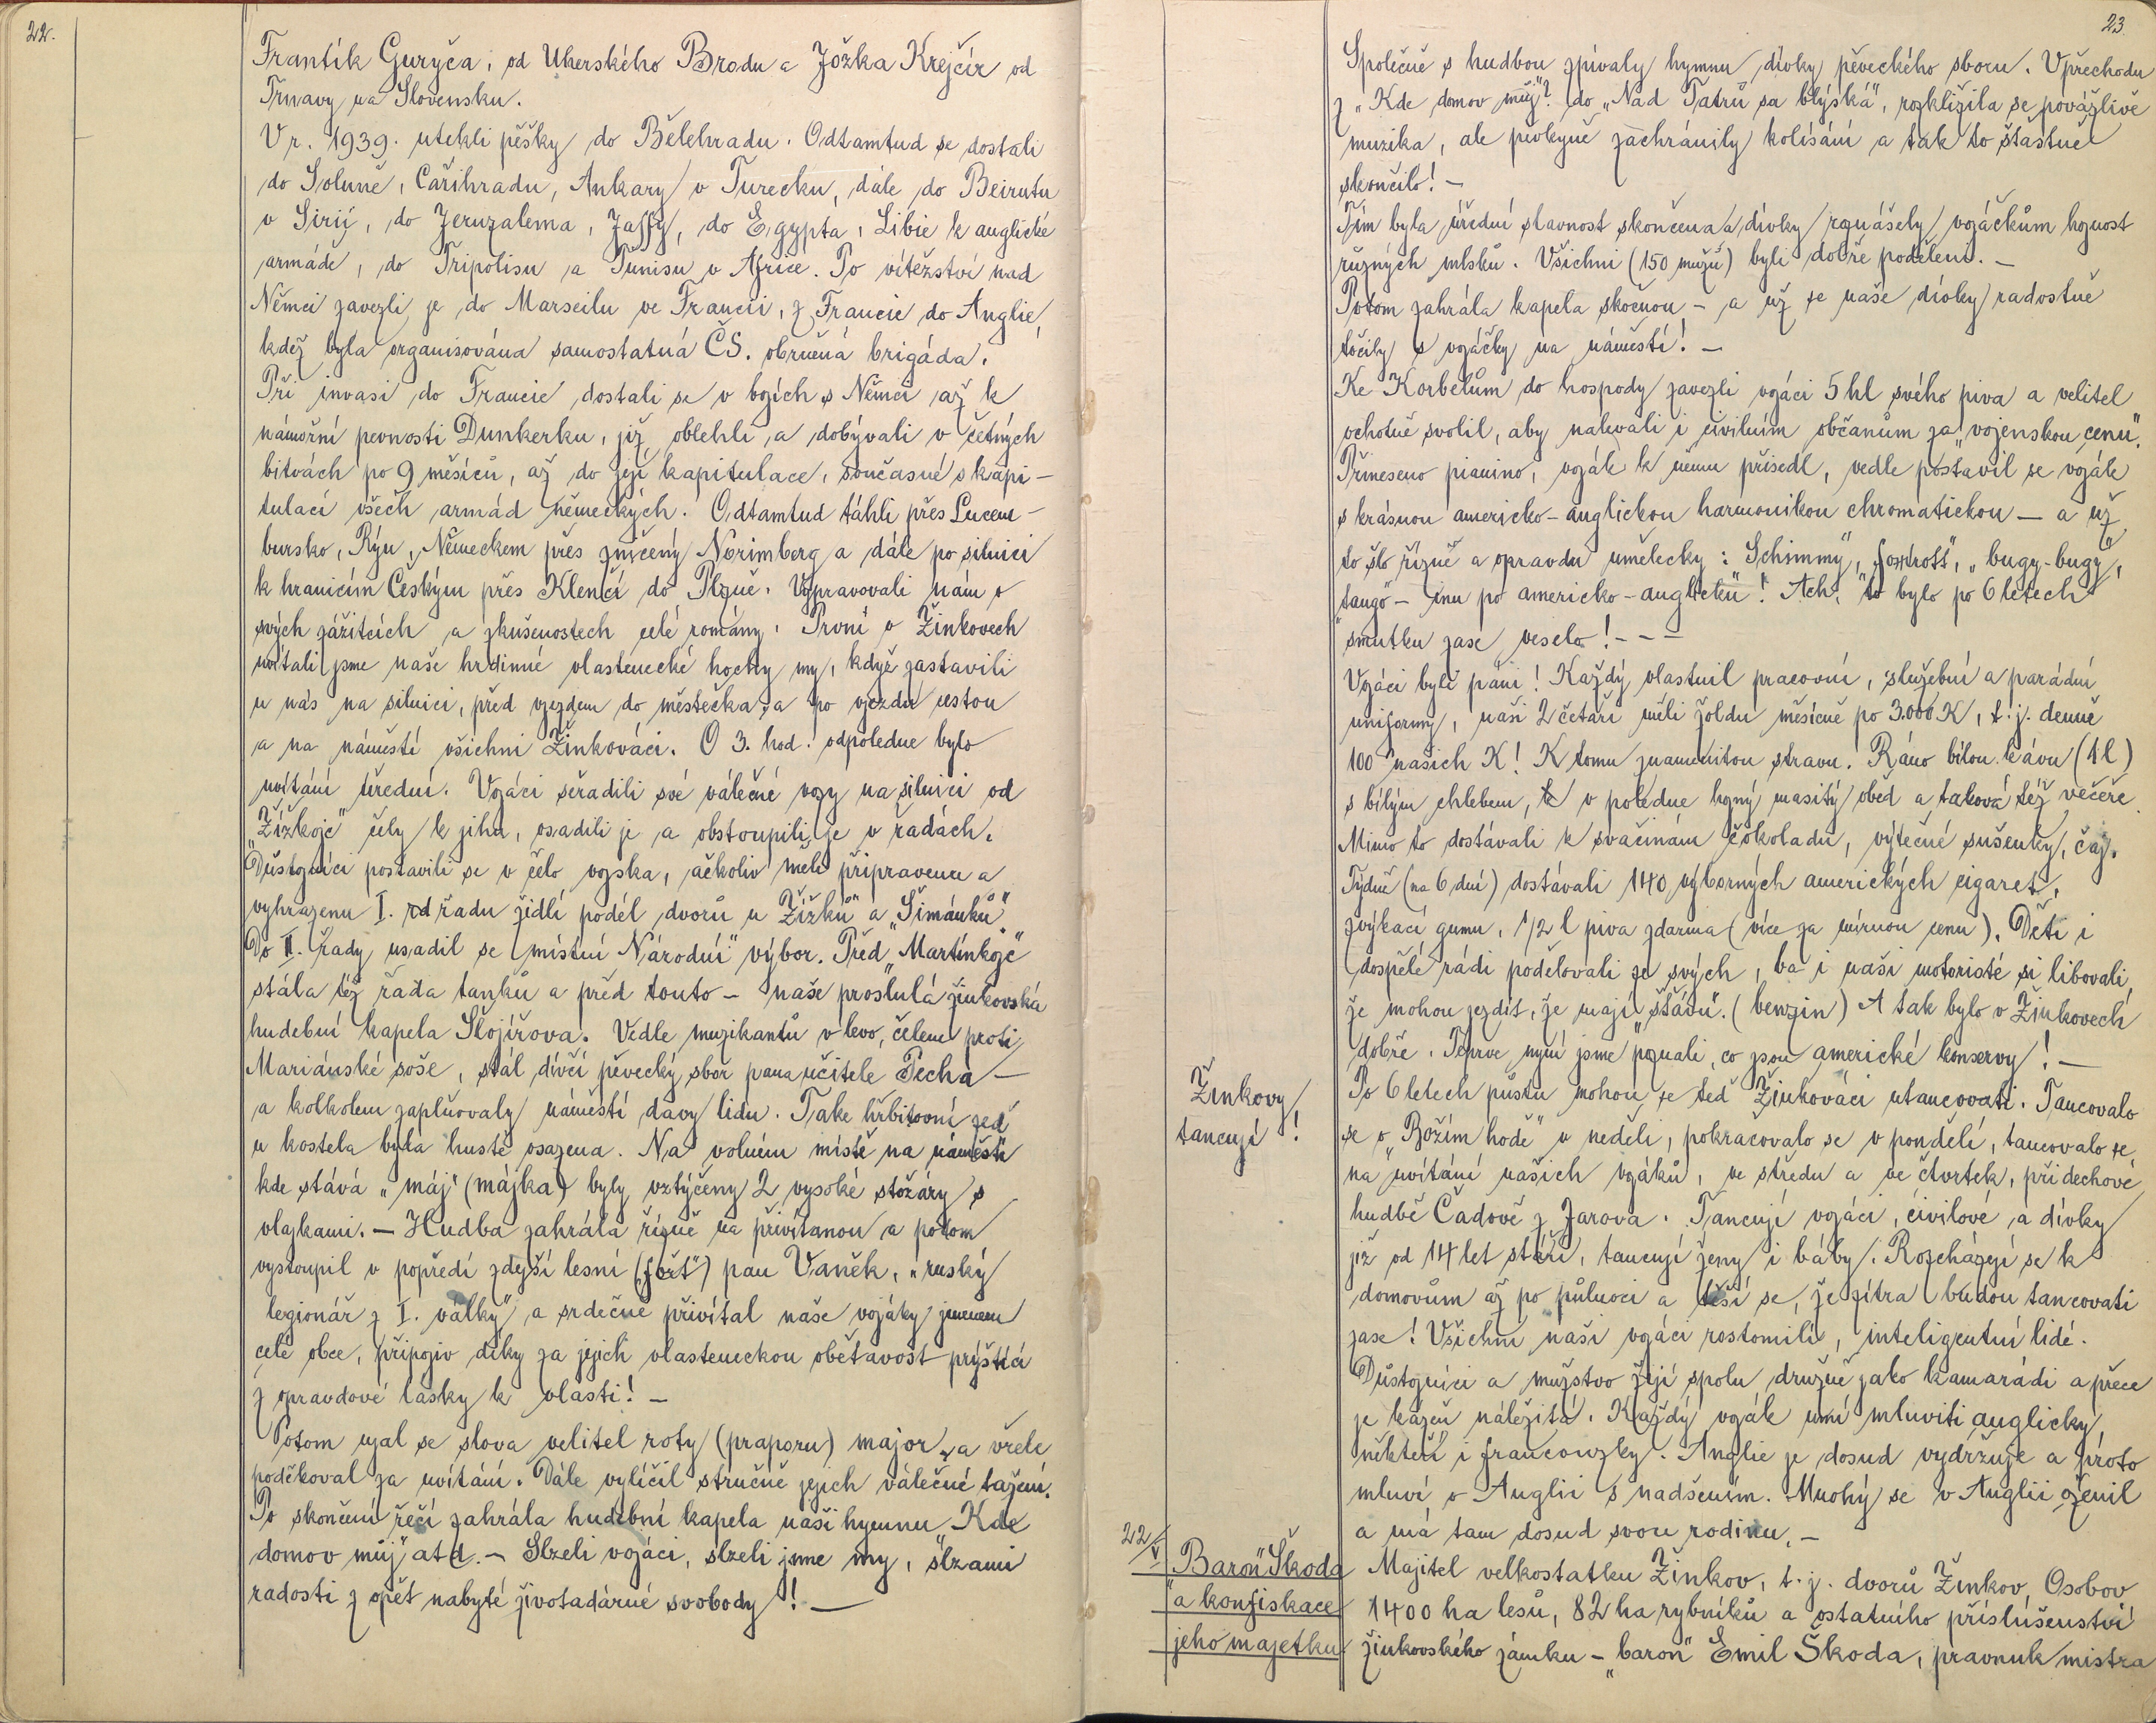 22.
Frantík Guryča, od Uherského Brodu a Jožka Krejčíř od
Trnavy na Slovensku.
V r. 1939. utekli pěšky do Bělehradu. Odtamtud se dostali
do Soluně, Cařihradu, Ankary v Turecku, dále do Beirutu
v Sirii, do Jeruzalema, Jaffy, do Egypta, Libie k anglické
armádě, do Tripolisu a Tunisu v Africe. Po vítězství nad
Němci zavezli je do Marseilu ve Francii, z Francie do Anglie,
kdež byla organisována samostatná ČS. obrněná brigáda.
Při invasi do Francie dostali se v bojích s Němci až k
námořní pevnosti Dunkerku, již oblehli a dobývali v četných
bitvách po 9 měsíců, až do její kapitulace, současné s kapi-
tulací všech armád německých. Odtamtud táhli přes Lucem-
bursko, Rýn, Německem přes zničený Norimberg a dále po silnici
k hranicím Českým přes Klenčí do Plzně. Vypravovali nám o
svých zážitcích a zkušenostech celé romány. První v Žinkovech
uvítali jsme naše hrdinné vlastenecké hochy my, když zastavili
u nás na silnici, před vjezdem do městečka, a po vjezdu cestou
a na náměstí všichni Žinkováci. O 3. hod. odpoledne bylo
uvítání úřední. Vojáci seřadili své válečné vozy na silnici od
„Žížkojc" čely k jihu, osadili je a obstoupili je v řadách.
Důstojníci postavili se v čelo vojska, ačkoliv měli připravenu a
vyhrazenu I. řadu židlí podél dvorů u „Žížků" a „Šimánků"
Do II. řady usadil se místní „Národní" výbor. Před „Martínkojc"
stála též řada tanků a před touto - naše proslulá žinkovská
hudební kapela Slojířova. Vedle muzikantů vlevo, čelem proti
Mariánské soše, stál dívčí pěvecký sbor pana učitele Pecha -
a kolkolem zaplňovaly náměstí davy lidu. Take hřbitovní zeď
u kostela byla hustě osazena. Na volném místě na náměstí
kde stává „máj" (májka) byly vztýčeny 2 vysoké stožáry s
vlajkami. - Hudba zahrála řízně na přivítanou a potom
vystoupil v popředí zdejší lesní („fořt") pan Vaněk, „ruský
legionář z I. války" a srdečně přivítal naše vojáky jmenem
celé obce, připojiv díky za jejich vlasteneckou obětavost prýštící
z opravdové lásky k vlasti! -
Potom ujal se slova velitel roty (praporu) major, a vřele
poděkoval za uvítání. Dále vylíčil stručně jejich válečné tažení.
Po skončení řečí zahrála hudební kapela naši hymnu „Kde
domov můj" atd. - Slzeli vojáci, slzeli jsme my, slzami
radosti z opět nabyté životadárné svobody! -
23.
Společně s hudbou zpívaly hymnu dívky pěveckého sboru. V přechodu
z „Kde domov můj"? do „Nad Tatrů sa blýská", rozkližila se povážlivě
muzika, ale pěvkyně zachránily kolísání a tak to šťastně
skončilo! -
Tím byla úřední slavnost skončena a dívky roznášely vojáčkům hojnost
různých mlsků. Všichni (150 mužů) byli dobře poděleni. -
Potom zahrála kapela skočnou - a už se naše dívky radostně
točily s vojáčky na náměstí! -
Ke Korbelům do hospody zavezli vojáci 5 hl svého piva a velitel
ochotně svolil, aby nalévali i civilním občanům za „vojenskou cenu".
Přineseno pianino, voják k němu přisedl, vedle postavil se voják
s krásnou americko-anglickou harmonikou chromatickou - a už
to šlo řízně a opravdu umělecky: „Schimmy", „foxtrott", „bugy-bugy",
„tango" - inu po americko-anglicku! Ach, to bylo po 6 letech
smutku zase veselo! - - -
Vojáci byli páni! Každý vlastnil pracovní, služební a parádní
uniformy, naši 2 četaři měli žoldu měsíčně po 3.000 K, t.j. denně
100 našich K! K tomu znamenitou stravu. Ráno bílou kávu (1 l)
s bílým chlebem, v poledne hojný masitý oběd a taková též večeře.
Mimo to dostávali k svačinám čokoladu, výtečné sušenky, čaj.
Týdně (na 6 dní) dostávali 140 výborných amerických cigaret,
žvýkací gumu, 1/2 l piva zdarma (více za mírnou cenu). Děti i
dospělé rádi podělovali ze svých, ba i naši motoristé si libovali,
že mohou jezdit, že mají „šťávu". (benzin) A tak bylo v Žinkovech
dobře. Teprve nyní jsme poznali, co jsou americké konservy! -
Žinkovy
tancují!
Po 6 letech půstu mohou se teď Žinkováci utancovati. Tancovalo
se o „Božím hodě" v neděli, pokracovalo se v pondělí, tancovalo se
na uvítání našich vojáků, ve středu a ve čtvrtek, při dechové
hudbě Čadově z Jarova. Tancují vojáci, civilové a dívky
již od 14 let stáří, tancují ženy i báby. Rozcházejí se k
domovům až po půlnoci a těší se, že zítra budou tancovati
zase! Všichni naši vojáci roztomilí, inteligentní lidé.
Důstojníci a mužstvo žijí spolu družně jako kamarádi a přece
je kázeň náležitá. Každý voják umí mluviti anglicky,
někteří i francouzky. Anglie je dosud vydržuje a proto
mluví o Anglii s nadšením. Mnohý se v Anglii oženil
a má tam dosud svou rodinu. -
22/V
„Baron" Škoda
a konfiskace
jeho majetku
Majitel velkostatku Žinkov, t.j. dvorů Žinkov, Osobov
1400 ha lesů, 82 ha rybníků a ostatního příslúšenství
žinkovského zámku - „baron" Emil Škoda, pravnuk mistra